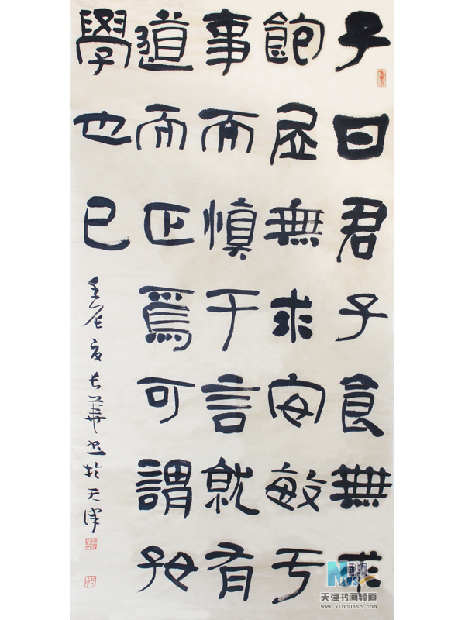 子曰君子食無求
飽居無求安敏于
事而慎于言就有
道而正焉可謂好
學也已
壬辰夏长華書於天津